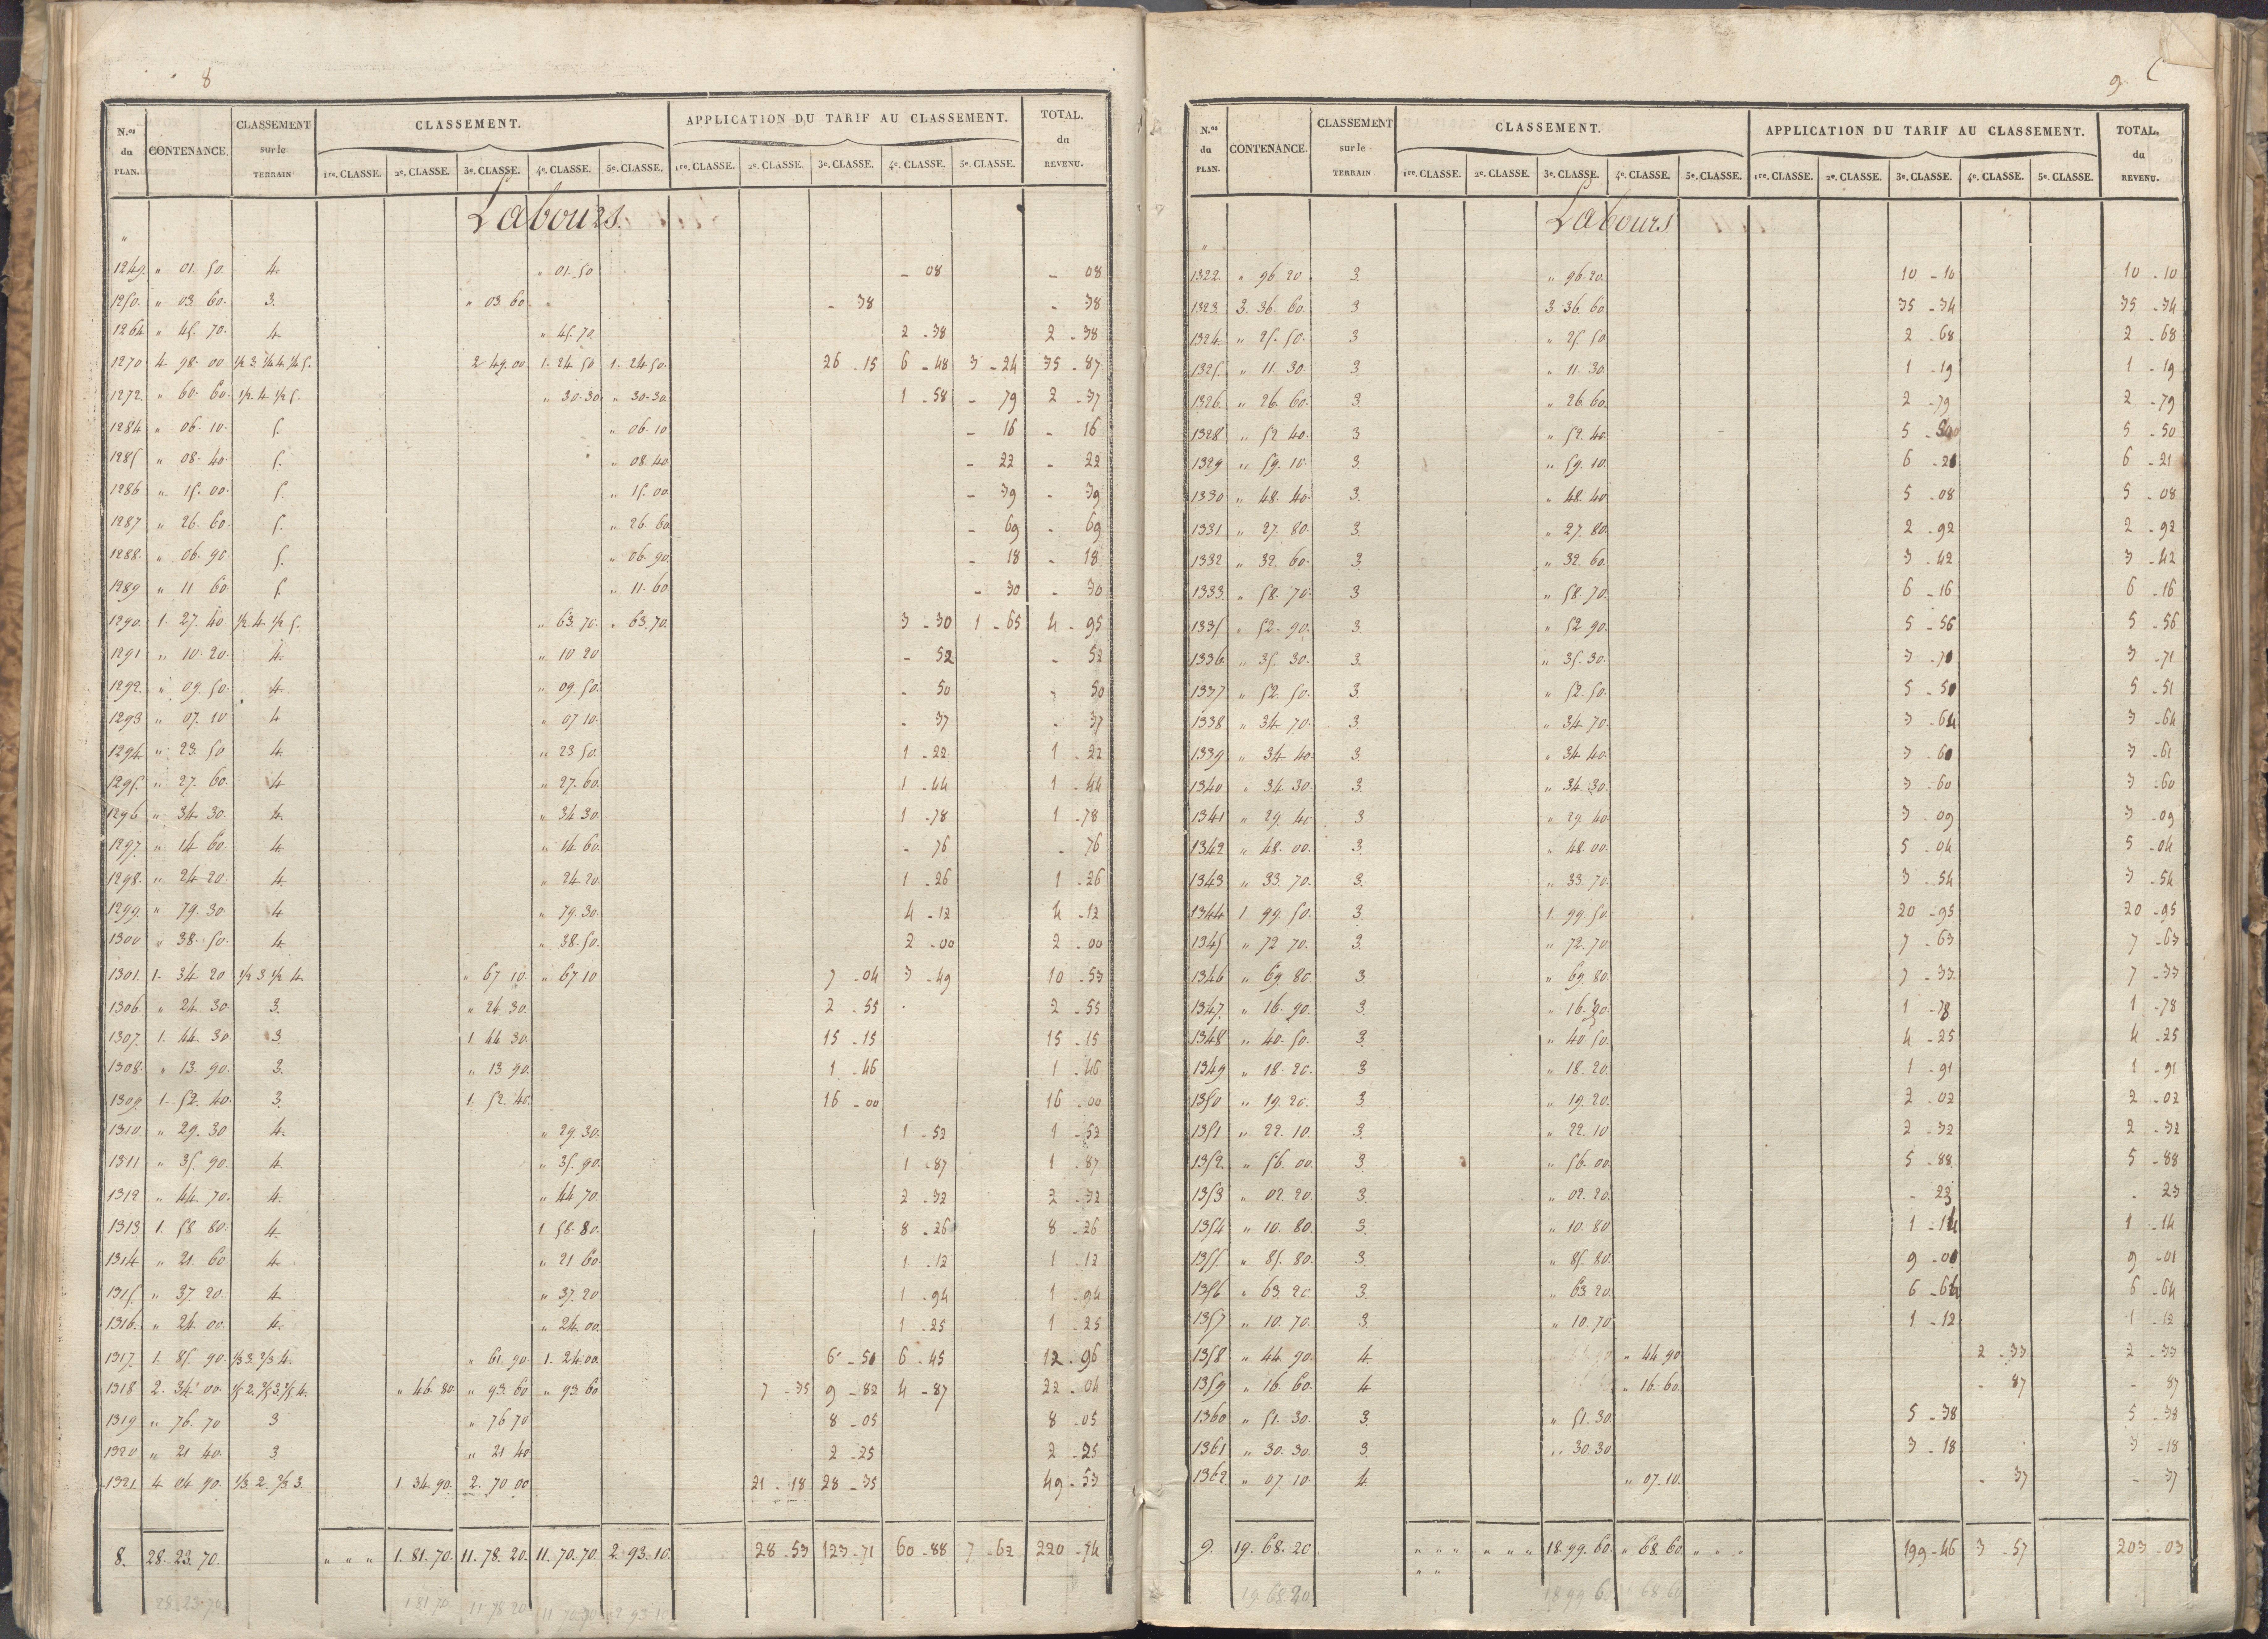 8
N.os du PLAN. CONTENANCE. CLASSEMENT sur le TERRAIN CLASSEMENT. APPLICATION DU TARIF AU CLASSEMENT. TOTAL. du REVENU.
1re. CLASSE. 2e. CLASSE. 3e. CLASSE. 4e. CLASSE. 5e. CLASSE. 1re. CLASSE. 2e. CLASSE. 3e. CLASSE. 4e. CLASSE. 5e. CLASSE.
Labours.
"
1249. " 01. 50. 4. " 01. 50 - 08 - 08
1250. " 03. 60. 3. " 03. 60 " - 38 - 38
1264 " 45. 70. 4. " 45. 70. 2 - 38 2 - 38
1270 4. 98. 00 1/2 3. 1/4 4. 1/4 5. 2 49. 00 1. 24. 50 1. 24. 50. 26 - 15 6 - 48 3 - 24 35 - 87
1272. " 60. 60. 1/2. 4. 1/2 5. " 30. 30. " 30. 30. 1 - 58 - 79 2 - 37
1284 " 06. 10. 5. " 06. 10 - 16 - 16
1285 " 08. 40. 5. " 08. 40 - 22 - 22
1286 " 15. 00. 5. " 15. 00 - 39 - 39
1287 " 26. 60. 5. " 26. 60 - 69 - 69
1288. " 06. 90. 5. " 06. 90. - 18 - 18
1289 " 11 60. 5 " 11. 60. - 30 - 30
1290. 1. 27. 40 1/2. 4. 1/2 5. " 63. 70. " 63. 70. 3 - 30 1 - 65 4 - 95
1291 " 10. 20. 4. " 10 20 - 52 - 52
1292. " 09. 50. 4 " 09. 50. - 50 - 50
1293 " 07. 10 4 " 07 10. - 37 - 37
1294. " 23. 50 4. " 23 50. 1 - 22 1 - 22
1295. " 27. 60. 4 " 27. 60. 1 - 44 1 - 44
1296 " 34. 30. 4. " 34. 30. 1 - 78 1 - 78
1297. " 14 60. 4. " 14 60. - 76 - 76
1298. " 24 20. 4. " 24 20. 1 - 26 1 - 26
1299. " 79. 30. 4 " 79. 30. 4 - 12 4 - 12
1300 " 38. 50. 4. " 38. 50. 2 - 00 2 - 00
1301. 1. 34 20 1/2 3 1/2 4. " 67 10. " 67 10 7 - 04 3 - 49 10 - 53
1306. " 24. 30. 3. " 24. 30. 2 - 55 2 - 55
1307. 1. 44. 30. 3 1. 44 30. 15 - 15 15 - 15
1308. " 13. 90. 3. " 13 90. 1 - 46 1 - 46
1309. 1. 52. 40. 3. 1. 52. 40. 16 - 00 16 - 00
1310. " 29. 30 4. " 29. 30. 1 - 52 1 - 52
1311 " 35. 90. 4. " 35. 90. 1 - 87 1 - 87
1312 " 44. 70. 4. " 44 70. 2 - 32 2 - 32
1313. 1. 58 80. 4. 1 58. 80. 8 - 26 8 - 26
1314 " 21. 60 4. " 21 60. 1 - 12 1 - 12
1315. " 37. 20. 4. " 37. 20 1 - 94 1 - 94
1316. " 24 00. 4. " 24. 00. 1 - 25 1 - 25
1317. 1. 85. 90. 1/3 3. 2/3 4. " 61. 90. 1. 24. 00. 6 - 50 6 - 45 12 - 96
1318 2. 34. 00. 1/5 2. 2/5 3. 2/5 4. " 46. 80. " 93. 60 " 93. 60 7 - 35 9 - 82 4 - 87 22 - 04
1319 " 76. 70 3 " 76 70 8 - 05 8 - 05
1320 " 21 40. 3 " 21 40 2 - 25 2 - 25
1321. 4. 04. 90. 1/3. 2. 2/3 3. 1. 34. 90. 2. 70 00 21 - 18 28 - 35 49 - 53
8. 28. 23. 70. " " " 1. 81. 70. 11. 78. 20. 11. 70. 70. 2. 93. 10. 28 - 53 123 - 71 60 - 88 7 - 62 220 - 74
28. 23. 70. 1 81 70 11 78 20 11 70 70 2 93 10
9.
N.os du PLAN. CONTENANCE. CLASSEMENT sur le TERRAIN CLASSEMENT. APPLICATION DU TARIF AU CLASSEMENT. TOTAL. du REVENU.
1re. CLASSE. 2e. CLASSE. 3e. CLASSE. 4e. CLASSE. 5e. CLASSE. 1re. CLASSE. 2e. CLASSE. 3e. CLASSE. 4e. CLASSE. 5e. CLASSE.
Labours
"
1322. " 96 20 3. " 96. 20. 10 - 10 10 - 10
1323. 3. 36. 60. 3 3. 36. 60. 35 - 34 35 - 34
1324. " 25. 50. 3 " 25. 50 2 - 68 2 - 68
1325. " 11. 30. 3 " 11. 30. 1 - 19 1 - 19
1326. " 26. 60. 3. " 26. 60. 2 - 79 2 - 79
1328. " 52 40. 3 " 52. 40. 5 - 50 5 - 50
1329 " 59. 10. 3. " 59. 10. 6 - 21 6 - 21
1330 " 48. 40. 3. " 48. 40. 5 - 08 5 - 08
1331. " 27. 80. 3. " 27. 80. 2 - 92 2 - 92
1332 " 32. 60. 3. " 32. 60. 3 - 42 3 - 42
1333. " 58. 70. 3 " 58. 70. 6 - 16 6 - 16
1335. " 52. 90. 3. " 52 90. 5 - 56 5 - 56
1336. " 35. 30. 3. " 35. 30. 3 - 71 3 - 71
1337 " 52. 50. 3. " 52. 50. 5 - 51 5 - 51
1338 " 34. 70. 3. " 34 70. 3 - 64 3 - 64
1339. " 34 40. 3. " 34 40. 3 - 61 3 - 61
1340 " 34. 30. 3. " 34. 30. 3 - 60 3 - 60
1341 " 29. 40 3 " 29. 40. 3 - 09 3 - 09
1342 " 48. 00. 3. " 48. 00. 5 - 04 5 - 04
1343 " 33. 70. 3. " 33. 70. 3 - 54 3 - 54
1344 1. 99. 50. 3. 1. 99. 50. 20 - 95 20 - 95
1345 " 72 70. 3. " 72. 70. 7 - 63 7 - 63
1346 " 69. 80. 3. " 69. 80. 7 - 33. 7 - 33
1347. " 16. 90. 3. " 16. 90. 1 - 78 1 - 78
1348 " 40. 50. 3. " 40. 50. 4 - 25 4 - 25
1349 " 18. 20. 3 " 18. 20. 1 - 91 1 - 91
1350 " 19. 20. 3. " 19. 20. 2 - 02 2 - 02
1351 " 22. 10. 3. " 22. 10 2 - 32 2 - 32
1352. " 56. 00. 3. " 56. 00. 5 - 88. 5 - 88
1353 " 02. 20. 3. " 02. 20. - 23 - 23
1354 " 10. 80. 3. " 10. 80 1 - 14 1 - 14
1355. " 85. 80. 3. " 85. 80. 9 - 01 9 - 01
1356 " 63. 20. 3. " 63 20. 6 - 64 6 - 64
1357 " 10. 70. 3. " 10. 70 1 - 12 1 - 12
1358 " 44. 90. 4. " 44. 90 2 - 33 2 - 33
1359 " 16. 60. 4. " 16. 60. - 87 - 87
1360 " 51. 30. 3. " 51. 30. 5 - 38 5 - 38
1361 " 30. 30. 3. " 30. 30 3 - 18 3 - 18
1362 " 07. 10. 4. " 07. 10. - 37 - 37
9. 19. 68. 20 " " " " " " 18. 99. 60. " 68. 60. " " " 199 - 46 3 - 57 203 - 03
" "
19. 68. 20 18 99 60 68 60